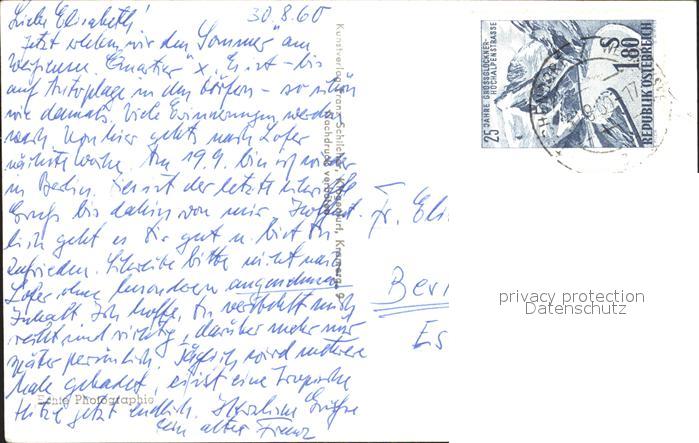 Liebe Elisabeth! 30.8.60
Jetzt erleben wir den "Sommer" am
Es ist – bis
auf Autoplage in den Dörfern – so schön
wie damals. Viele Erinnerungen werden
wach. Von hier gehts nach Lofer
nächste Woche. Am 19.9. bin ich wieder
in Berlin. Dies ist der letzte
Gruß bis dahin von mir. Hoffent-
lich geht es Dir gut u. bist Du
zufrieden. Schreibe bitte nicht nach
Lofer ohne besonderen angenehmen
Inhalt. Ich hoffe, Du verstehst mich
recht und richtig, darüber mehr nur
später persönlich. Täglich wird mehrere
Male gebadet, es ist eine tropische
Hitze jetzt endlich. Herzliche Grüße
Dein alter Franz
Echte Photographie
Kunstverlag Franz Schilcher, Klagenfurt,
Nachdruck verboten
Fr. Eli
Berl
Es
25 JAHRE GROSSGLOCKNER-
HOCHALPENSTRASSE
S 1.80
REPUBLIK ÖSTERREICH
privacy protection
Datenschutz